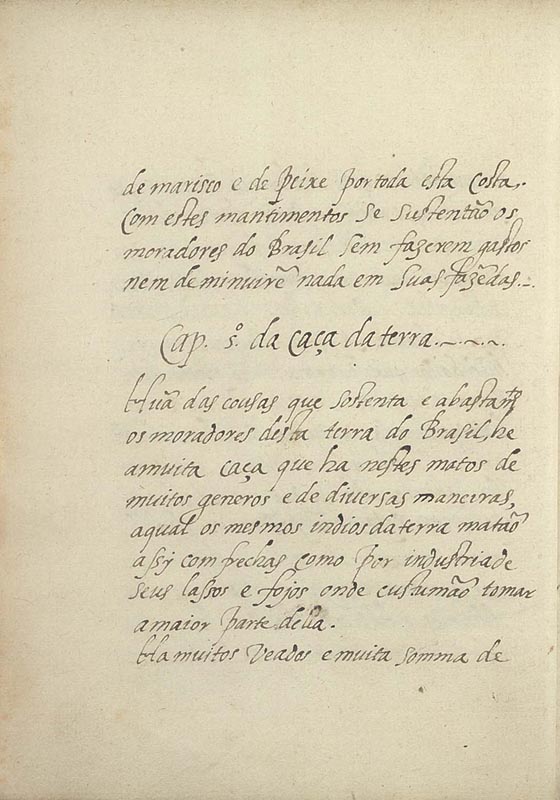 de marisco e de peixe por toda esta costa,.
Com estes mantimentos se sustentão os
moradores do Brasil sem fazerem gastos
nem deminuirẽ nada em suas fazẽdas.~.
Cap. 5º. da caça da terra.~.~.~.
Huã das cousas que sostenta e abasta
os moradores desta terra do Brasil, he
a muita caça que ha nestes matos de
muitos generos e de diversas maneiras,
a qual os mesmos indios da terra matão
assy com frechas como por industria de
seus lassos e fojos onde custumão tomar
a maior parte della.
Ha muitos veados e muita somma de